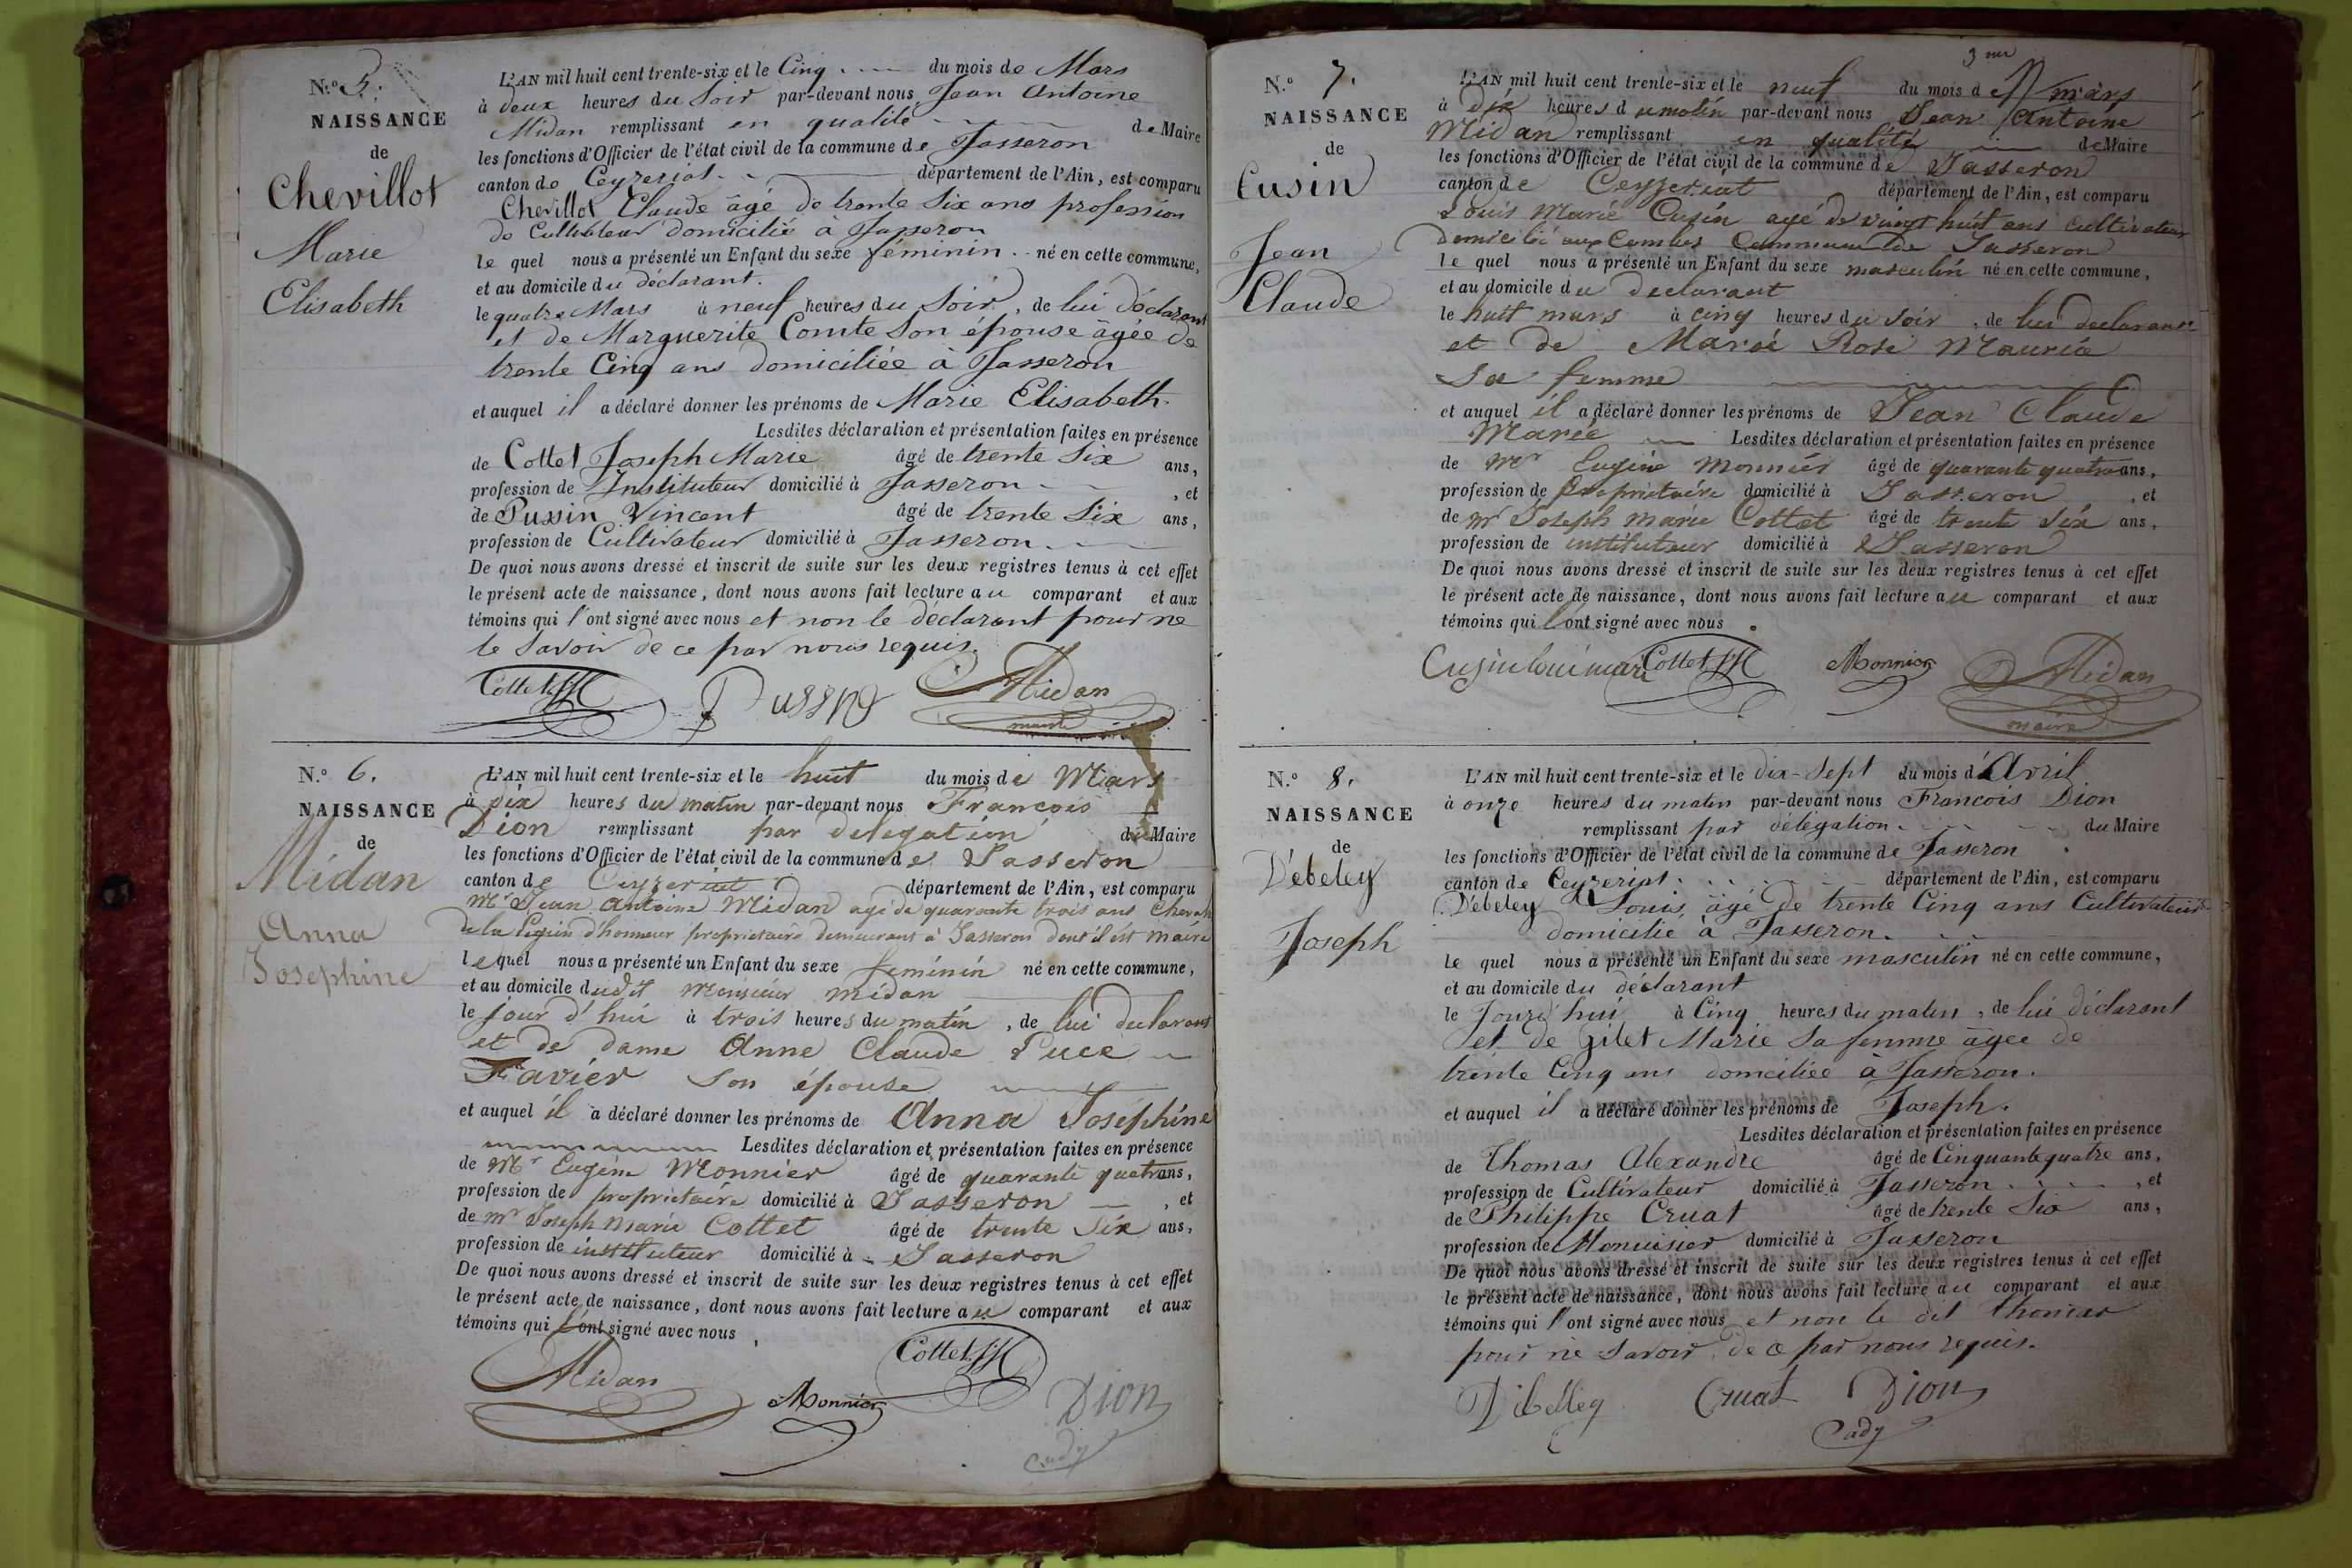 N.º 5.
NAISSANCE
de
Chevillot
Marie
Elisabeth
L'AN mil huit cent trente-six et le Cinq du mois de Mars
à deux heures du Soir par-devant nous Jean Antoine
Midan remplissant en qualité de Maire
les fonctions d'Officier de l'état civil de la commune de Jasseron
canton de Ceyzeriat département de l'Ain, est comparu
Chevillot Claude âgé de trente Six ans profession
de Cultivateur domicilié à Jasseron
le quel nous a présenté un Enfant du sexe féminin né en cette commune,
et au domicile du déclarant.
le quatre Mars à neuf heures du Soir, de lui déclarant
et de Marguerite Comte son épouse âgée de
trente Cinq ans domiciliée à Jasseron
et auquel il a déclaré donner les prénoms de Marie Elisabeth.
Lesdites déclaration et présentation faites en présence
de Cottet Joseph Marie âgé de trente Six ans,
profession de Instituteur domicilié à Jasseron, et
de Pussin Vincent âgé de trente Six ans,
profession de Cultivateur domicilié à Jasseron
De quoi nous avons dressé et inscrit de suite sur les deux registres tenus à cet effet
le présent acte de naissance, dont nous avons fait lecture au comparant et aux
témoins qui l'ont signé avec nous et non le déclarant pour ne
le Savoir de ce par nous requis.
Cottet JM Midan
maire
N.º 6.
NAISSANCE
de
Midan
Anna
Josephine
L'AN mil huit cent trente-six et le huit du mois de Mars
à dix heures du matin par-devant nous François
Dion remplissant par delegation du Maire
les fonctions d'Officier de l'état civil de la commune de Jasseron
canton de Ceyzeriat département de l'Ain, est comparu
Mr Jean Antoine Midan agé de quarante trois ans Chevalr
de la Légion d'honneur proprietaire demeurant à Jasseron dont il est maire
lequel nous a présenté un Enfant du sexe feminin né en cette commune,
et au domicile dudit Monsieur Midan
le jour d'hui à trois heures du matin, de lui declarant
et de dame Anne Claude Luce
Favier son épouse
et auquel il a déclaré donner les prénoms de Anna Joséphine
Lesdites déclaration et présentation faites en présence
de Mr Eugène Monnier âgé de quarante quatre ans,
profession de proprietaire domicilié à Jasseron, et
de mr Joseph marie Cottet âgé de trente six ans,
profession de instituteur domicilié à Jasseron
De quoi nous avons dressé et inscrit de suite sur les deux registres tenus à cet effet
le présent acte de naissance, dont nous avons fait lecture au comparant et aux
témoins qui l'ont signé avec nous
Midan Monnier Cottet JM Dion
Cady
3me
N.º 7.
NAISSANCE
de
Cusin
Jean
Claude
L'AN mil huit cent trente-six et le neuf du mois de mars
à dix heures du matin par-devant nous Jean Antoine
Midan remplissant en qualité de Maire
les fonctions d'Officier de l'état civil de la commune de Jasseron
canton de Ceyzeriat département de l'Ain, est comparu
Louis Marie Cusin agé de vingt huit ans cultivateur
domicilié aux Combes Commune de Jasseron
le quel nous a présenté un Enfant du sexe masculin né en cette commune,
et au domicile du declarant
le huit mars à cinq heures du soir, de lui declarant
et de Marie Rose Mauria
sa femme
et auquel il a déclaré donner les prénoms de Jean Claude
Marie Lesdites déclaration et présentation faites en présence
de Mr Eugène Monnier âgé de quarante quatre ans,
profession de Proprietaire domicilié à Jasseron, et
de mr Joseph marie Cottet âgé de trente six ans,
profession de instituteur domicilié à Jasseron
De quoi nous avons dressé et inscrit de suite sur les deux registres tenus à cet effet
le présent acte de naissance, dont nous avons fait lecture au comparant et aux
témoins qui l'ont signé avec nous.
Cusin loui mari Cottet JM Monnier Midan
maire
N.º 8.
NAISSANCE
de
Débeley
Joseph
L'AN mil huit cent trente-six et le dix-Sept du mois d'Avril
à onze heures du matin par-devant nous Francois Dion
remplissant par délégation du Maire
les fonctions d'Officier de l'état civil de la commune de Jasseron
canton de Ceyzeriat département de l'Ain, est comparu
Débeley Louis, âgé de trente Cinq ans Cultivateur
domicilié à Jasseron.
le quel nous a présenté un Enfant du sexe masculin né en cette commune,
et au domicile du déclarant
le Jourd'hui à Cinq heures du matin, de lui déclarant
et de Gilet Marie Sa femme âgée de
trente Cinq ans domiciliée à Jasseron.
et auquel il a déclaré donner les prénoms de Joseph.
Lesdites déclaration et présentation faites en présence
de Thomas Alexandre âgé de Cinquante quatre ans,
profession de Cultivateur domicilié à Jasseron, et
de Philippe Cruat âgé de trente Six ans,
profession de Menuisier domicilié à Jasseron
De quoi nous avons dressé et inscrit de suite sur les deux registres tenus à cet effet
le présent acte de naissance, dont nous avons fait lecture au comparant et aux
témoins qui l'ont signé avec nous et non le dit thomas
pour ne Savoir, de ce par nous requis.
Cruat Dion
Cady